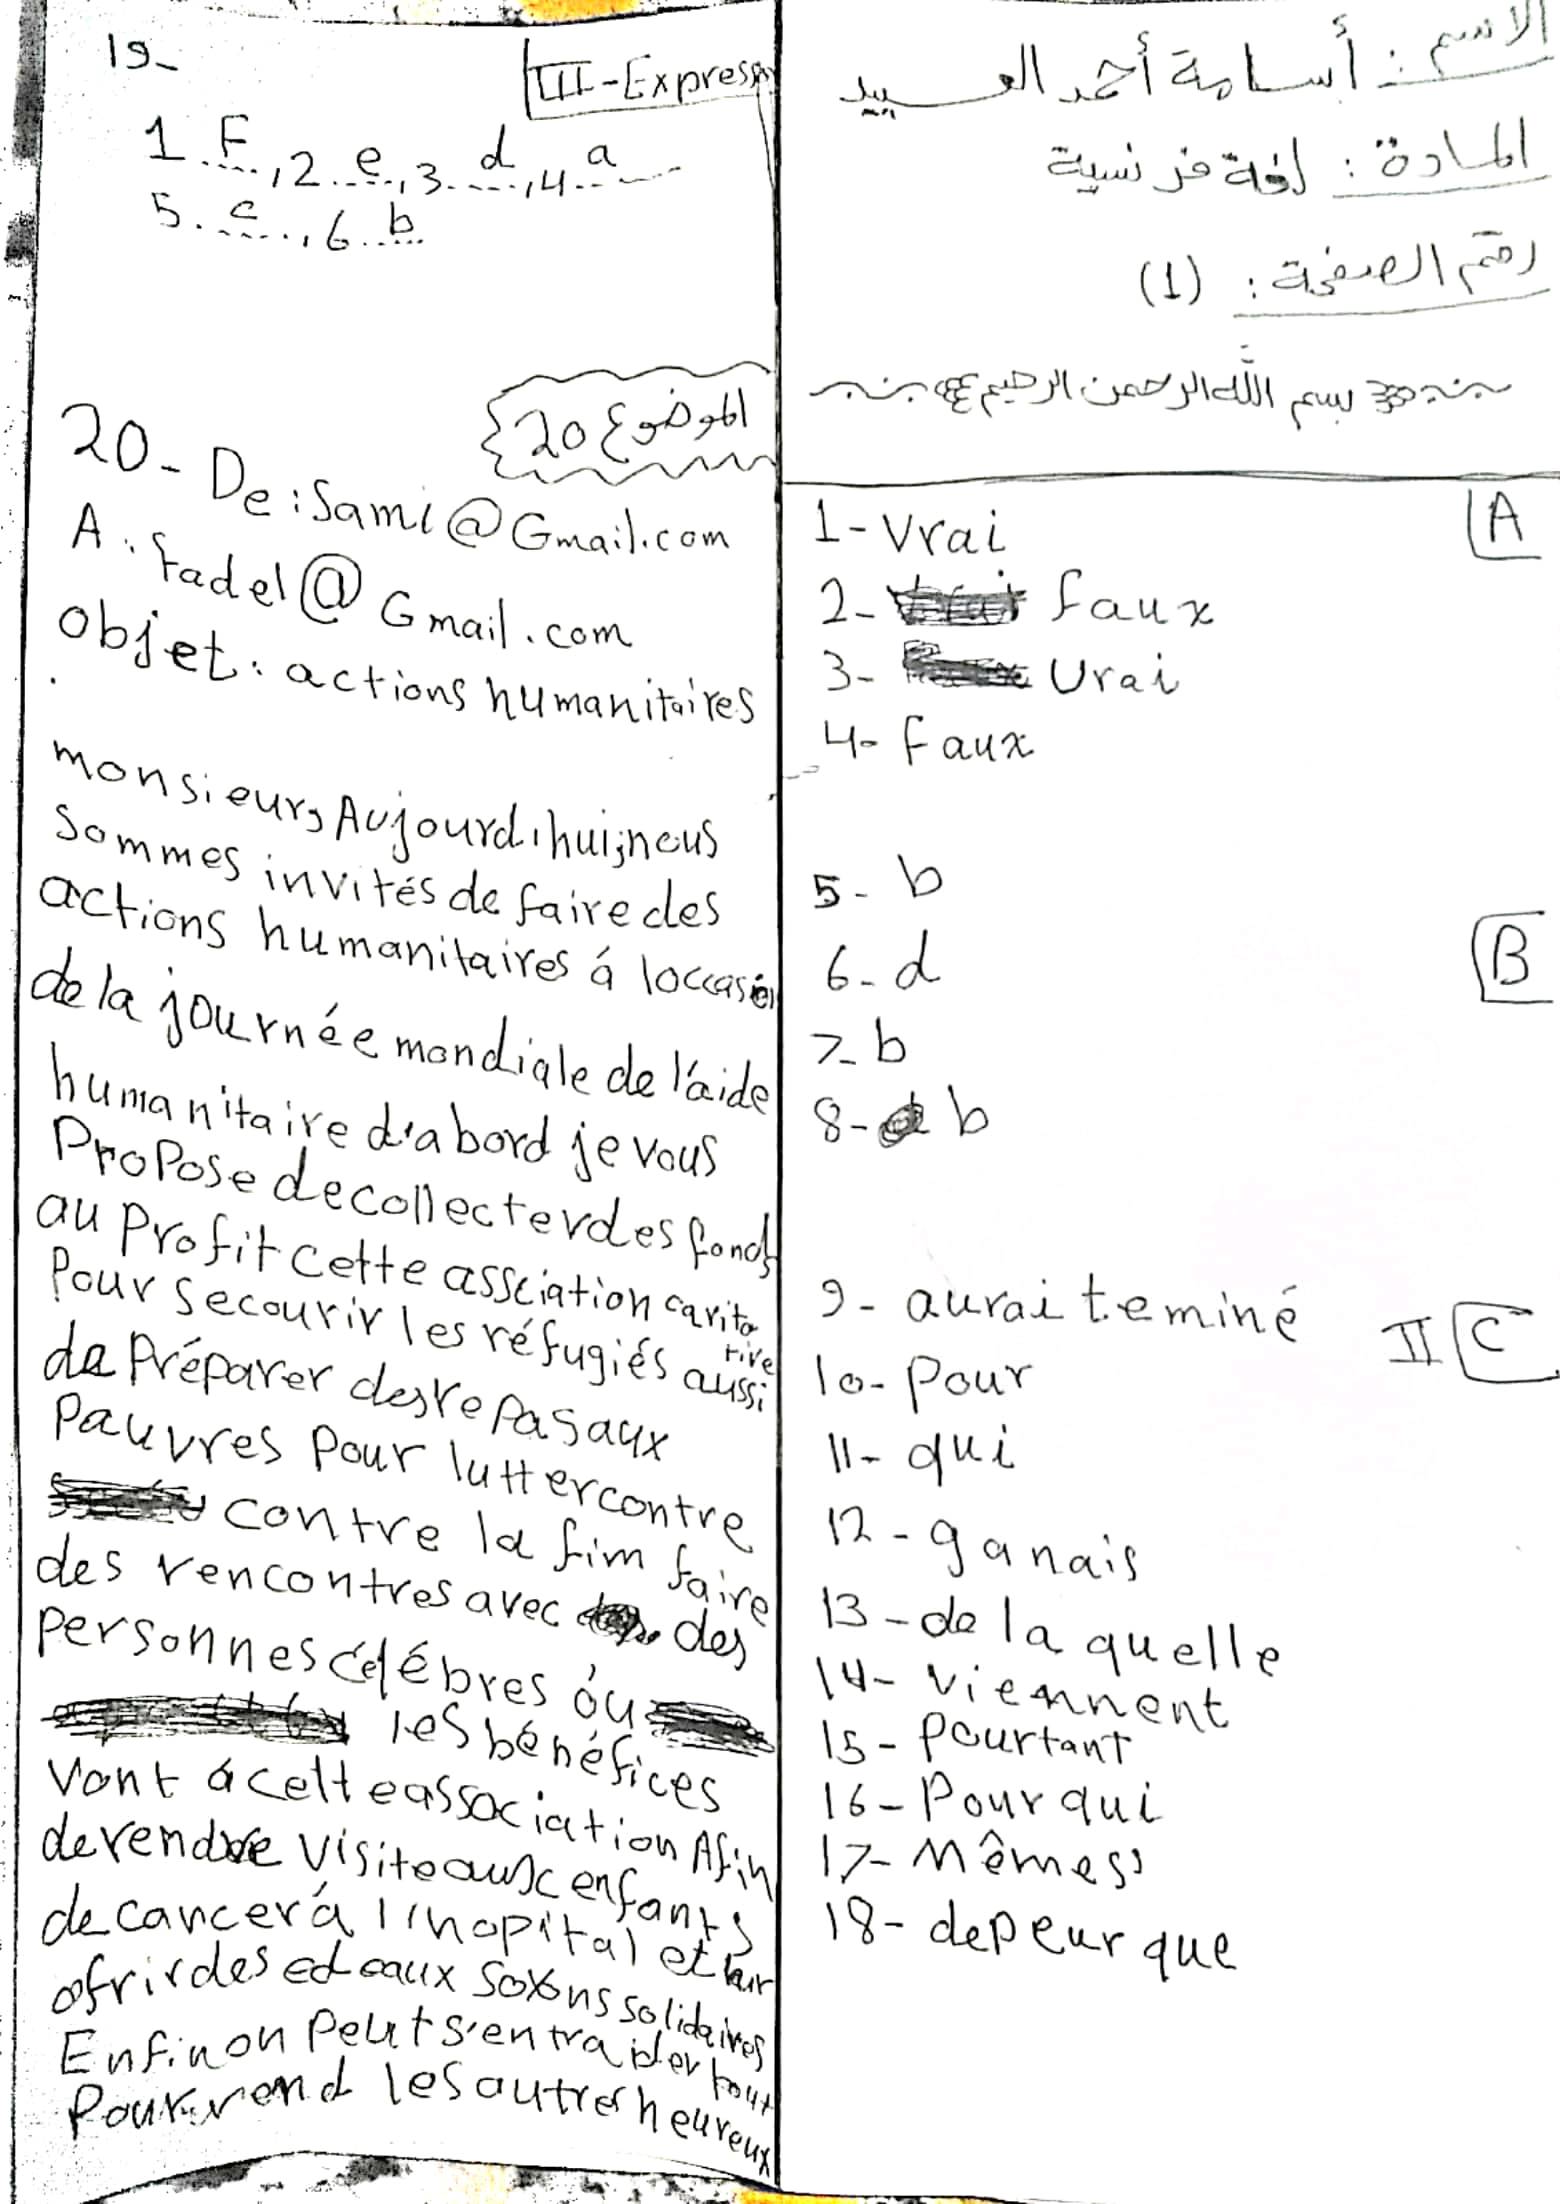 الاسم : أسامة أحمد العبيد
المادة : لغة فرنسية
رقم الصفحة : (1)
بسم الله الرحمن الرحيم
A
1- Vrai
2- faux
3- Vrai
4- faux
B
5- b
6- d
7- b
8- b
II C
9- aurai teminé
10- Pour
11- qui
12- ganais
13- de la quelle
14- viennent
15- Pourtant
16- Pour qui
17- Mêmess
18- de peur que
19-
III-Express
1. F, 2. e, 3. d, 4. a
5. c, 6. b
الموضوع 20
20- De : Sami@Gmail.com
A : fadel@Gmail.com
objet : actions humanitaires
monsieur, Aujourd'hui, nous
Sommes invités de faire des
actions humanitaires á loccasion
de la journée mondiale de l'aide
humanitaire d'abord je vous
Propose de collecter des fonds
au Profit cette assciation caritative
Pour secourir les réfugiés aussi
de Préparer des repas aux
Pauvres Pour lutter contre
contre la fim faire
des rencontres avec des
personnes célébres óu
les bénéfices
vont á cette association Afin
de rendre visite aux enfants
de cancer á l'hopital et leur
ofrir des edeaux soyons solidaires
Enfin on Peut s'entraider tout
Pour rend les autres heureux